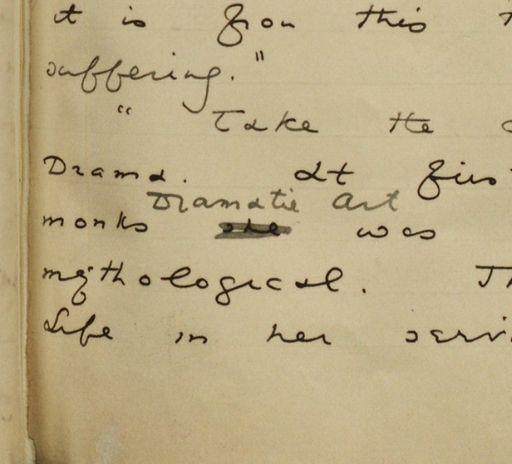 it is from this
suffering."
" Take the
Drama. At firs
Dramatic Art
monks she was
mythological. Th
Life in her servi